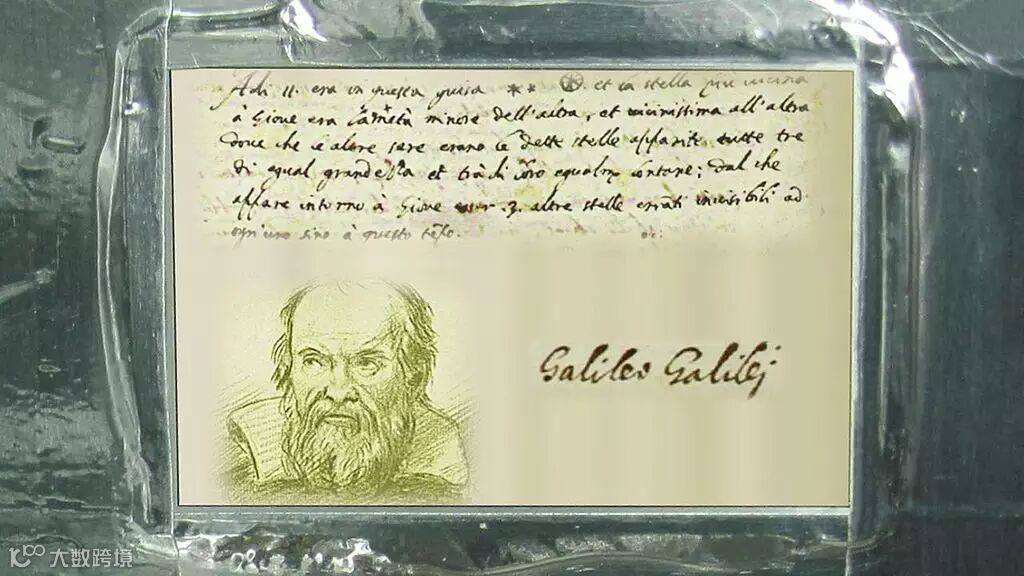 Adi 11. era in questa guisa ** et la stella più vicina
à Giove era la metà minore dell'altra, et vicinissima all'altra
dove che le altre sere erano le dette stelle apparite tutte tre
di egual grandezza et trà di loro egualm. lontane; dal che
appare intorno à Giove esser .3. altre stelle erranti invisibili ad
ogn'uno sino à questo tempo.
Galileo Galilej
大数跨境